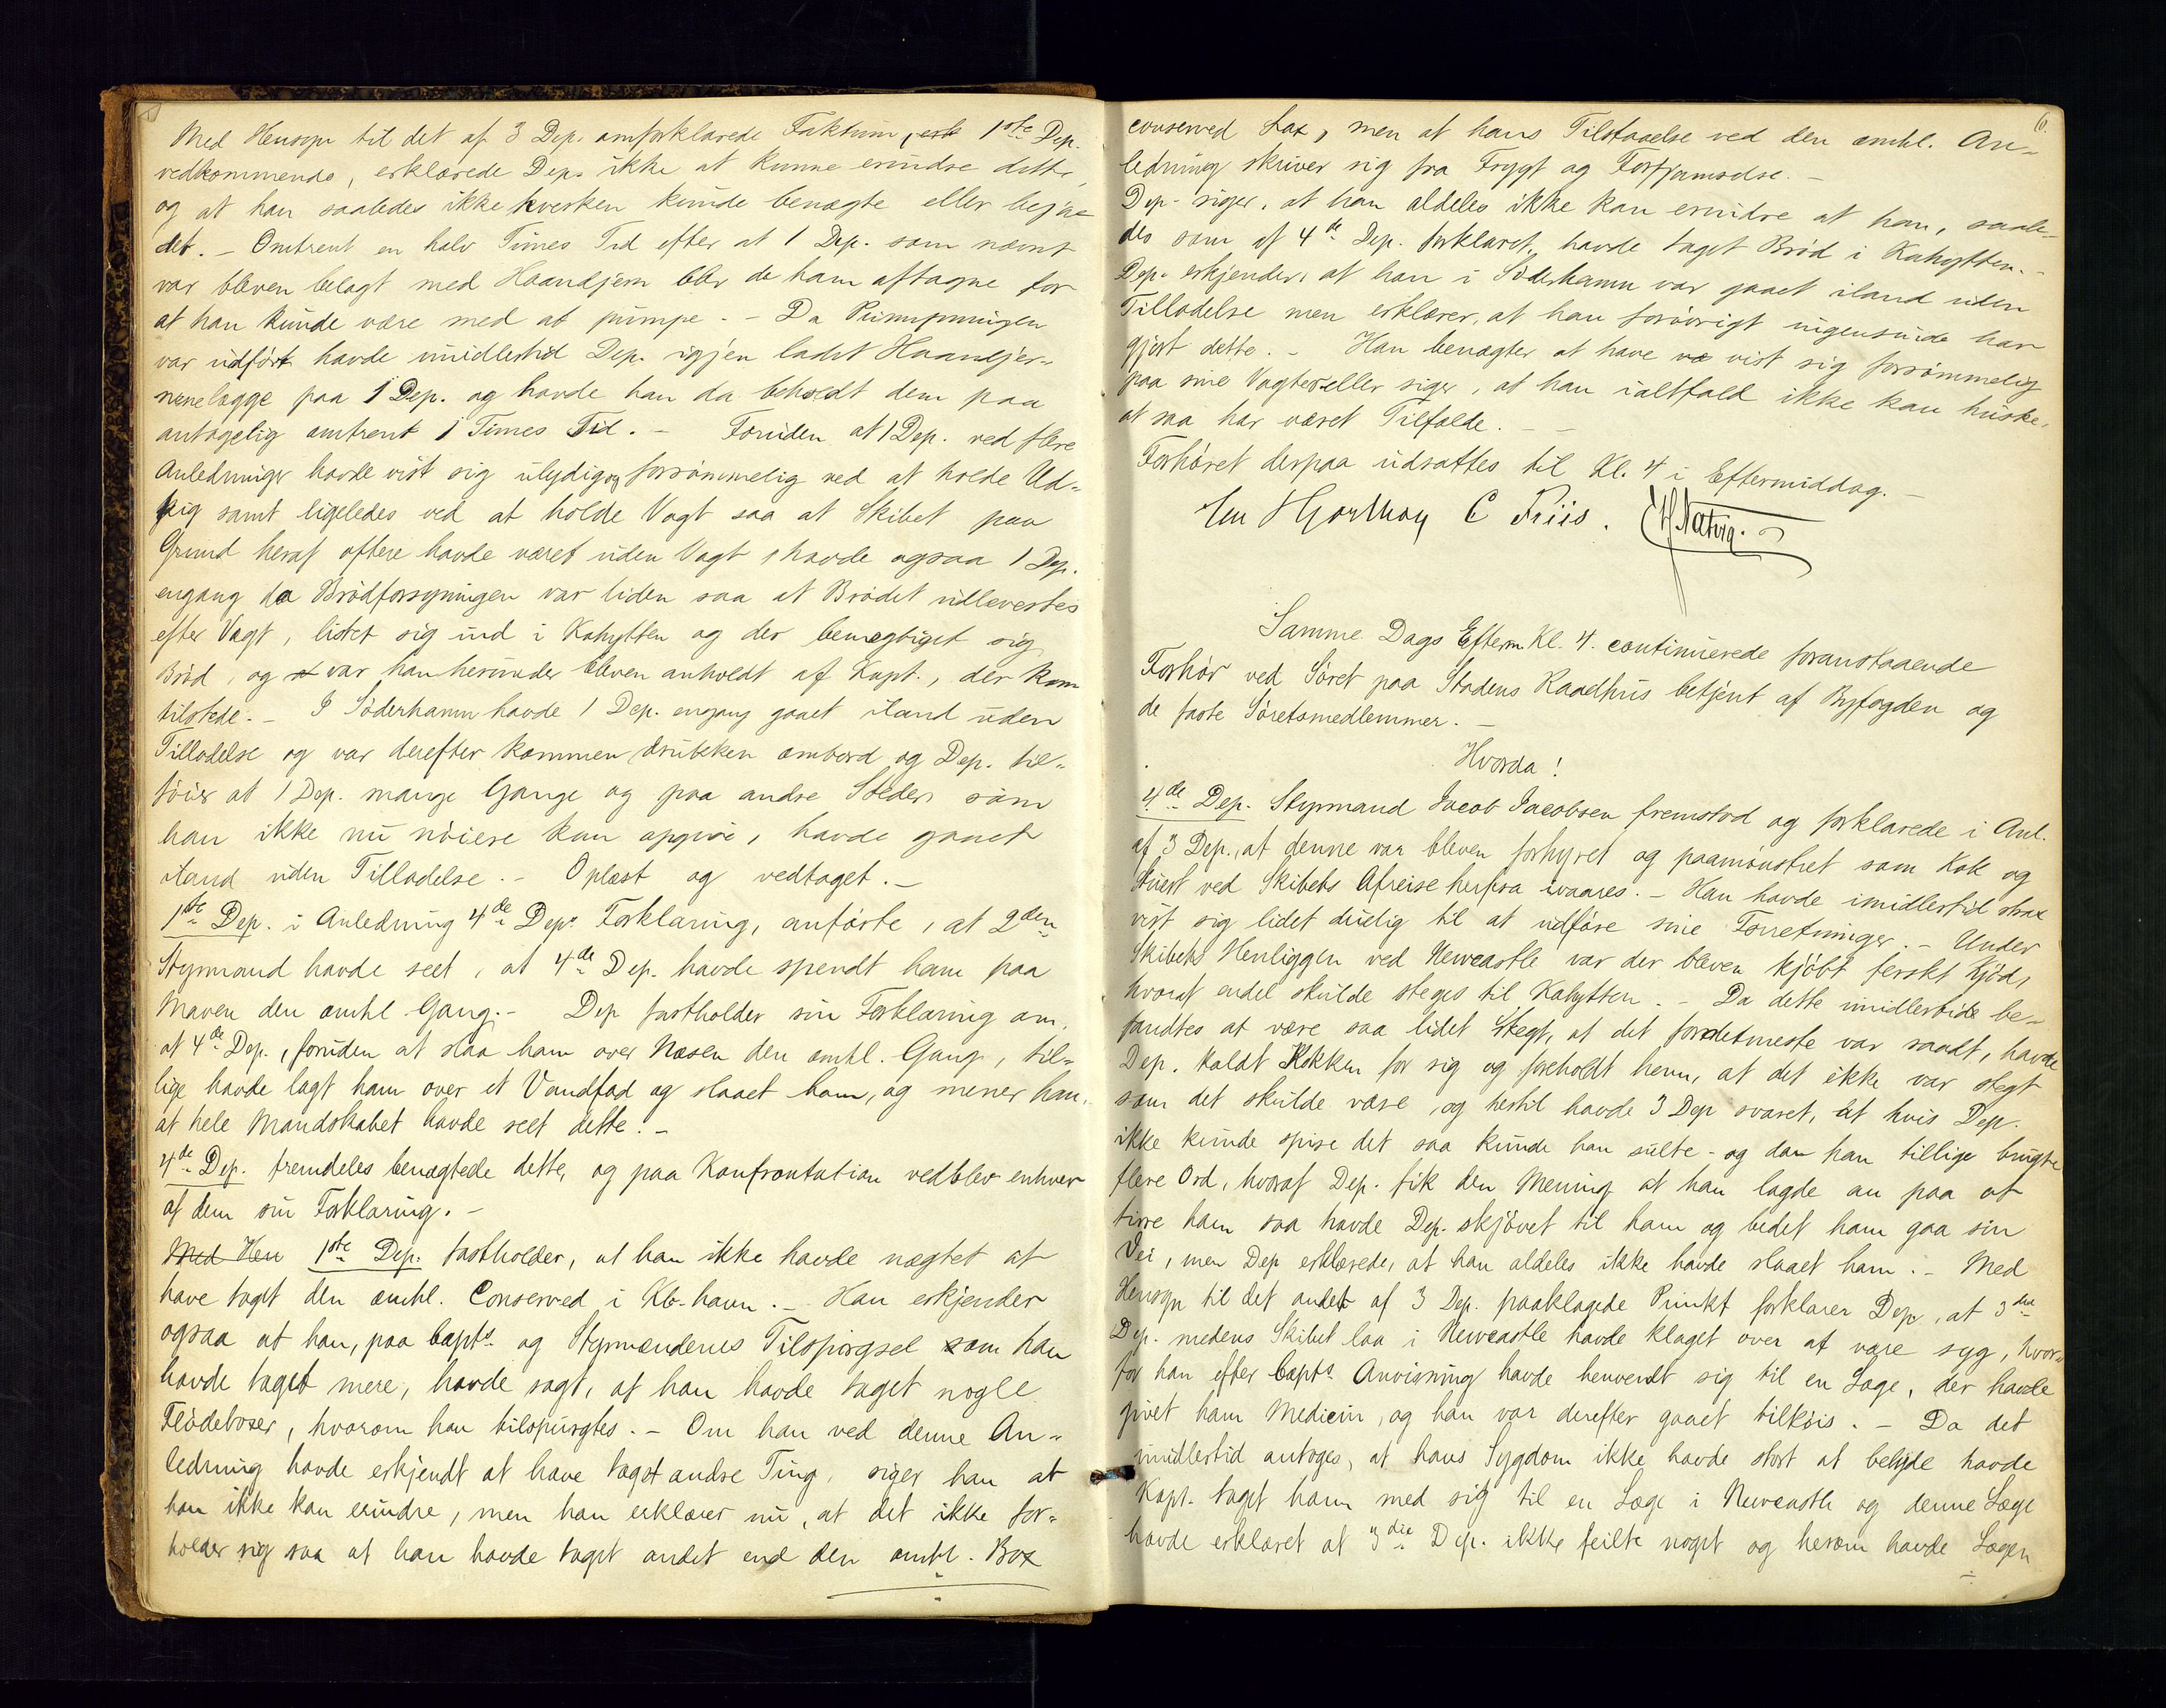 Med Hensyn til det af 3 Dep. omforklarede Faktum, 1ste Dep.
vedkommende, erklærede Dep. ikke at kunne erindre dette,
og at han saaledes ikke hverken kunde benægte eller bejae
det. - Omtrent en halv Times Tid efter at 1 Dep. som nævnt
var bleven belagt med Haandjern blev de ham aftagne for
at han kunde være med at pumpe. - Da Pumpningen
var udført havde imidlertid Dep. igjen ladet Haandjer-
nene lægge paa 1 Dep. og havde han da beholdt dem paa
antagelig omtrent 1 Times Tid. - Foruden at 1 Dep. ved flere
Anledninger havde vist sig ulydig og forsømmelig ved at holde Ud-
kig samt ligeledes ved at holde Vagt saa at Skibet paa
Grund heraf oftere havde været uden Vagt, havde ogsaa 1 Dep.
engang da Brødforsyningen var liden saa at Brødet udleveredes
efter Vægt, listet sig ind i Kahytten og der bemægtiget sig
Brød, og var han herunder bleven anholdt af Kapt., der kom
tilstede. - I Söderhamn havde 1 Dep. engang gaaet iland uden
Tilladelse og var derefter kommen drukken ombord og Dep. til-
føier at 1 Dep. mange Gange og paa andre Steder, som
han ikke nu nøiere kan opgive, havde gaaet
iland uden Tilladelse. - Oplæst og vedtaget. -
1ste Dep. i Anledning 4de Deps Forklaring, anførte, at 2den
Styrmand havde seet, at 4de Dep. havde spendt ham paa
Maven den omhl. Gang. - Dep fastholder sin Forklaring om,
at 4de Dep., foruden at slaa ham over Næsen den omhl. Gang, til-
lige havde lagt ham over et Vandfad og slaaet ham, og mener han,
at hele Mandskabet havde seet dette. -
4de Dep. fremdeles benægtede dette, og paa Konfrontation vedblev enhver
af dem sin Forklaring. -
Med Hen 1ste Dep. fastholder, at han ikke havde nægtet at
have taget den omhl. Conserved i Kb-havn. - Han erkjender
ogsaa at han, paa Capts og Styrmændenes Tilspørgsel om han
havde taget mere, havde sagt, at han havde taget nogle
Flødeboxer, hvorom han tilspurgtes. - Om han ved denne An-
ledning havde erkjendt at have taget andre Ting, siger han at
han ikke kan erindre, men han erklærer nu, at det ikke for-
holder sig saa at han havde taget andet end den omhl. Box
conserved Lax, men at hans Tilstaaelse ved den omhl. An-
ledning skriver sig fra Frygt og Forfjamselse. -
Dep. siger, at han aldeles ikke kan erindre at han, saale-
des som af 4de Dep. forklaret, havde taget Brød i Kahytten. -
Dep. erkjender, at han i Söderhamn var gaaet iland uden
Tilladelse men erklærer, at han forøvrigt ingensinde har
gjort dette. - Han benægter at have vist sig forsømmelig
paa sine Vagter eller siger, at han ialtfald ikke kan huske,
at saa har været Tilfælde. - -
Forhøret derpaa udsattes til Kl. 4 i Eftermiddag. -
Hjorthoy C Friis.
Samme Dags Efterm. Kl. 4. continuerede foranstaaende
Forhør ved Søret paa Stadens Raadhus betjent af Byfogden og
de faste Søretsmedlemmer. -
Hvorda!
4de Dep. Styrmand Jacob Jacobsen fremstod og forklarede i Anl.
af 3 Dep., at denne var bleven forhyret og paamønstret som Kok og
Stuert ved Skibets Afreise herfra ivaares. - Han havde imidlertid strax
vist sig lidet duelig til at udføre sine Forretninger. - Under
Skibets Henliggen ved Newcastle var der bleven kjøbt ferskt Kjød,
hvoraf endel skulde steges til Kahytten. - Da dette imidlertid be-
fandtes at være saa lidet stegt, at det fordetmeste var raadt, havde
Dep. kaldt Kokken for sig og foreholdt ham, at det ikke var stegt
som det skulde være, og hertil havde 3 Dep svaret, at hvis Dep.
ikke kunde spise det saa kunde han sulte - og da han tillige brugte
flere Ord, hvoraf Dep. fik den Mening at han lagde an paa at
tirre ham saa havde Dep. skjøvet til ham og bedet ham gaa sin
Vei, men Dep erklærede, at han aldeles ikke havde slaaet ham. - Med
Hensyn til det andet af 3 Dep. paaklagede Punkt forklarer Dep, at 3die
Dep. medens Skibet laa i Newcastle havde klaget over at være syg, hvor-
for han efter Capts Anvisning havde henvendt sig til en Læge, der havde
givet ham Medicin, og han var derefter gaaet tilkøis. - Da det
imidlertid antoges, at hans Sygdom ikke havde stort at betyde havde
Kapt. taget ham med sig til en Læge i Newcastle og denne Læge
havde erklæret at 3die Dep. ikke feilte noget og herom havde Lægen